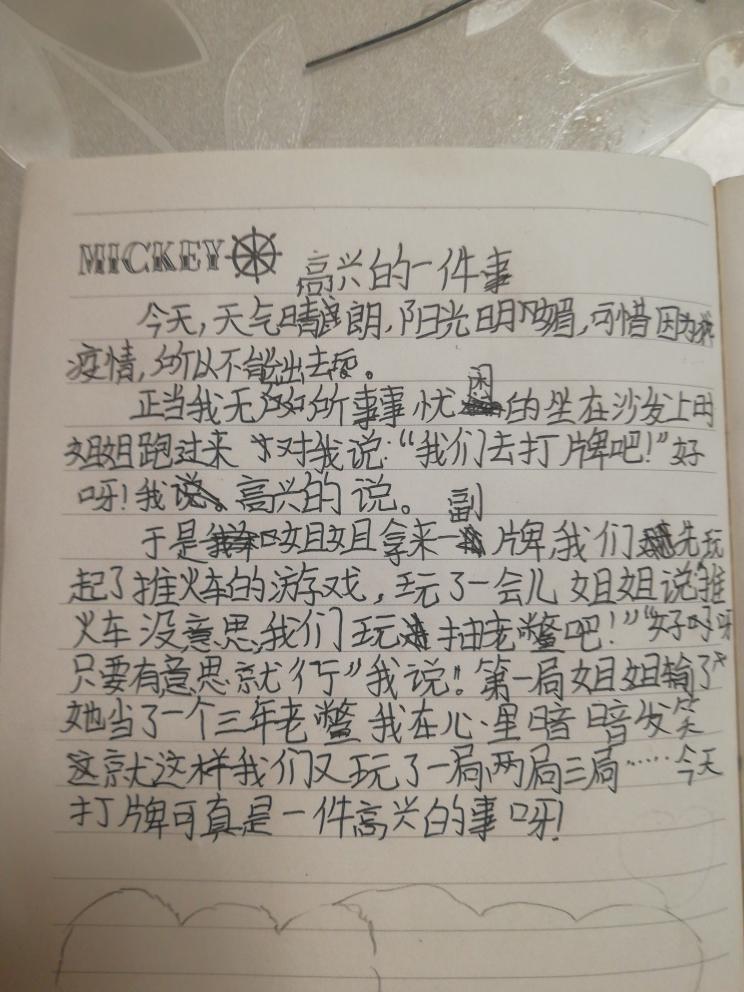 MICKEY 高兴的一件事
今天,天气晴朗,阳光明媚,可惜因为
疫情,所以不能出去玩。
正当我无所事事 忧闲的坐在沙发上时
姐姐跑过来 对我说:“我们去打牌吧!”好
呀!我高兴的说。
于是姐姐拿来一副牌,我们先玩
起了推火车的游戏,玩了一会儿 姐姐说“推
火车没意思,我们玩抽老鳖吧!”“好呀
只要有意思就行”我说。第一局姐姐输了
她当了一个三年老鳖 我在心里暗暗发笑
这就这样我们又玩了一局两局三局……今天
打牌可真是一件高兴的事呀!